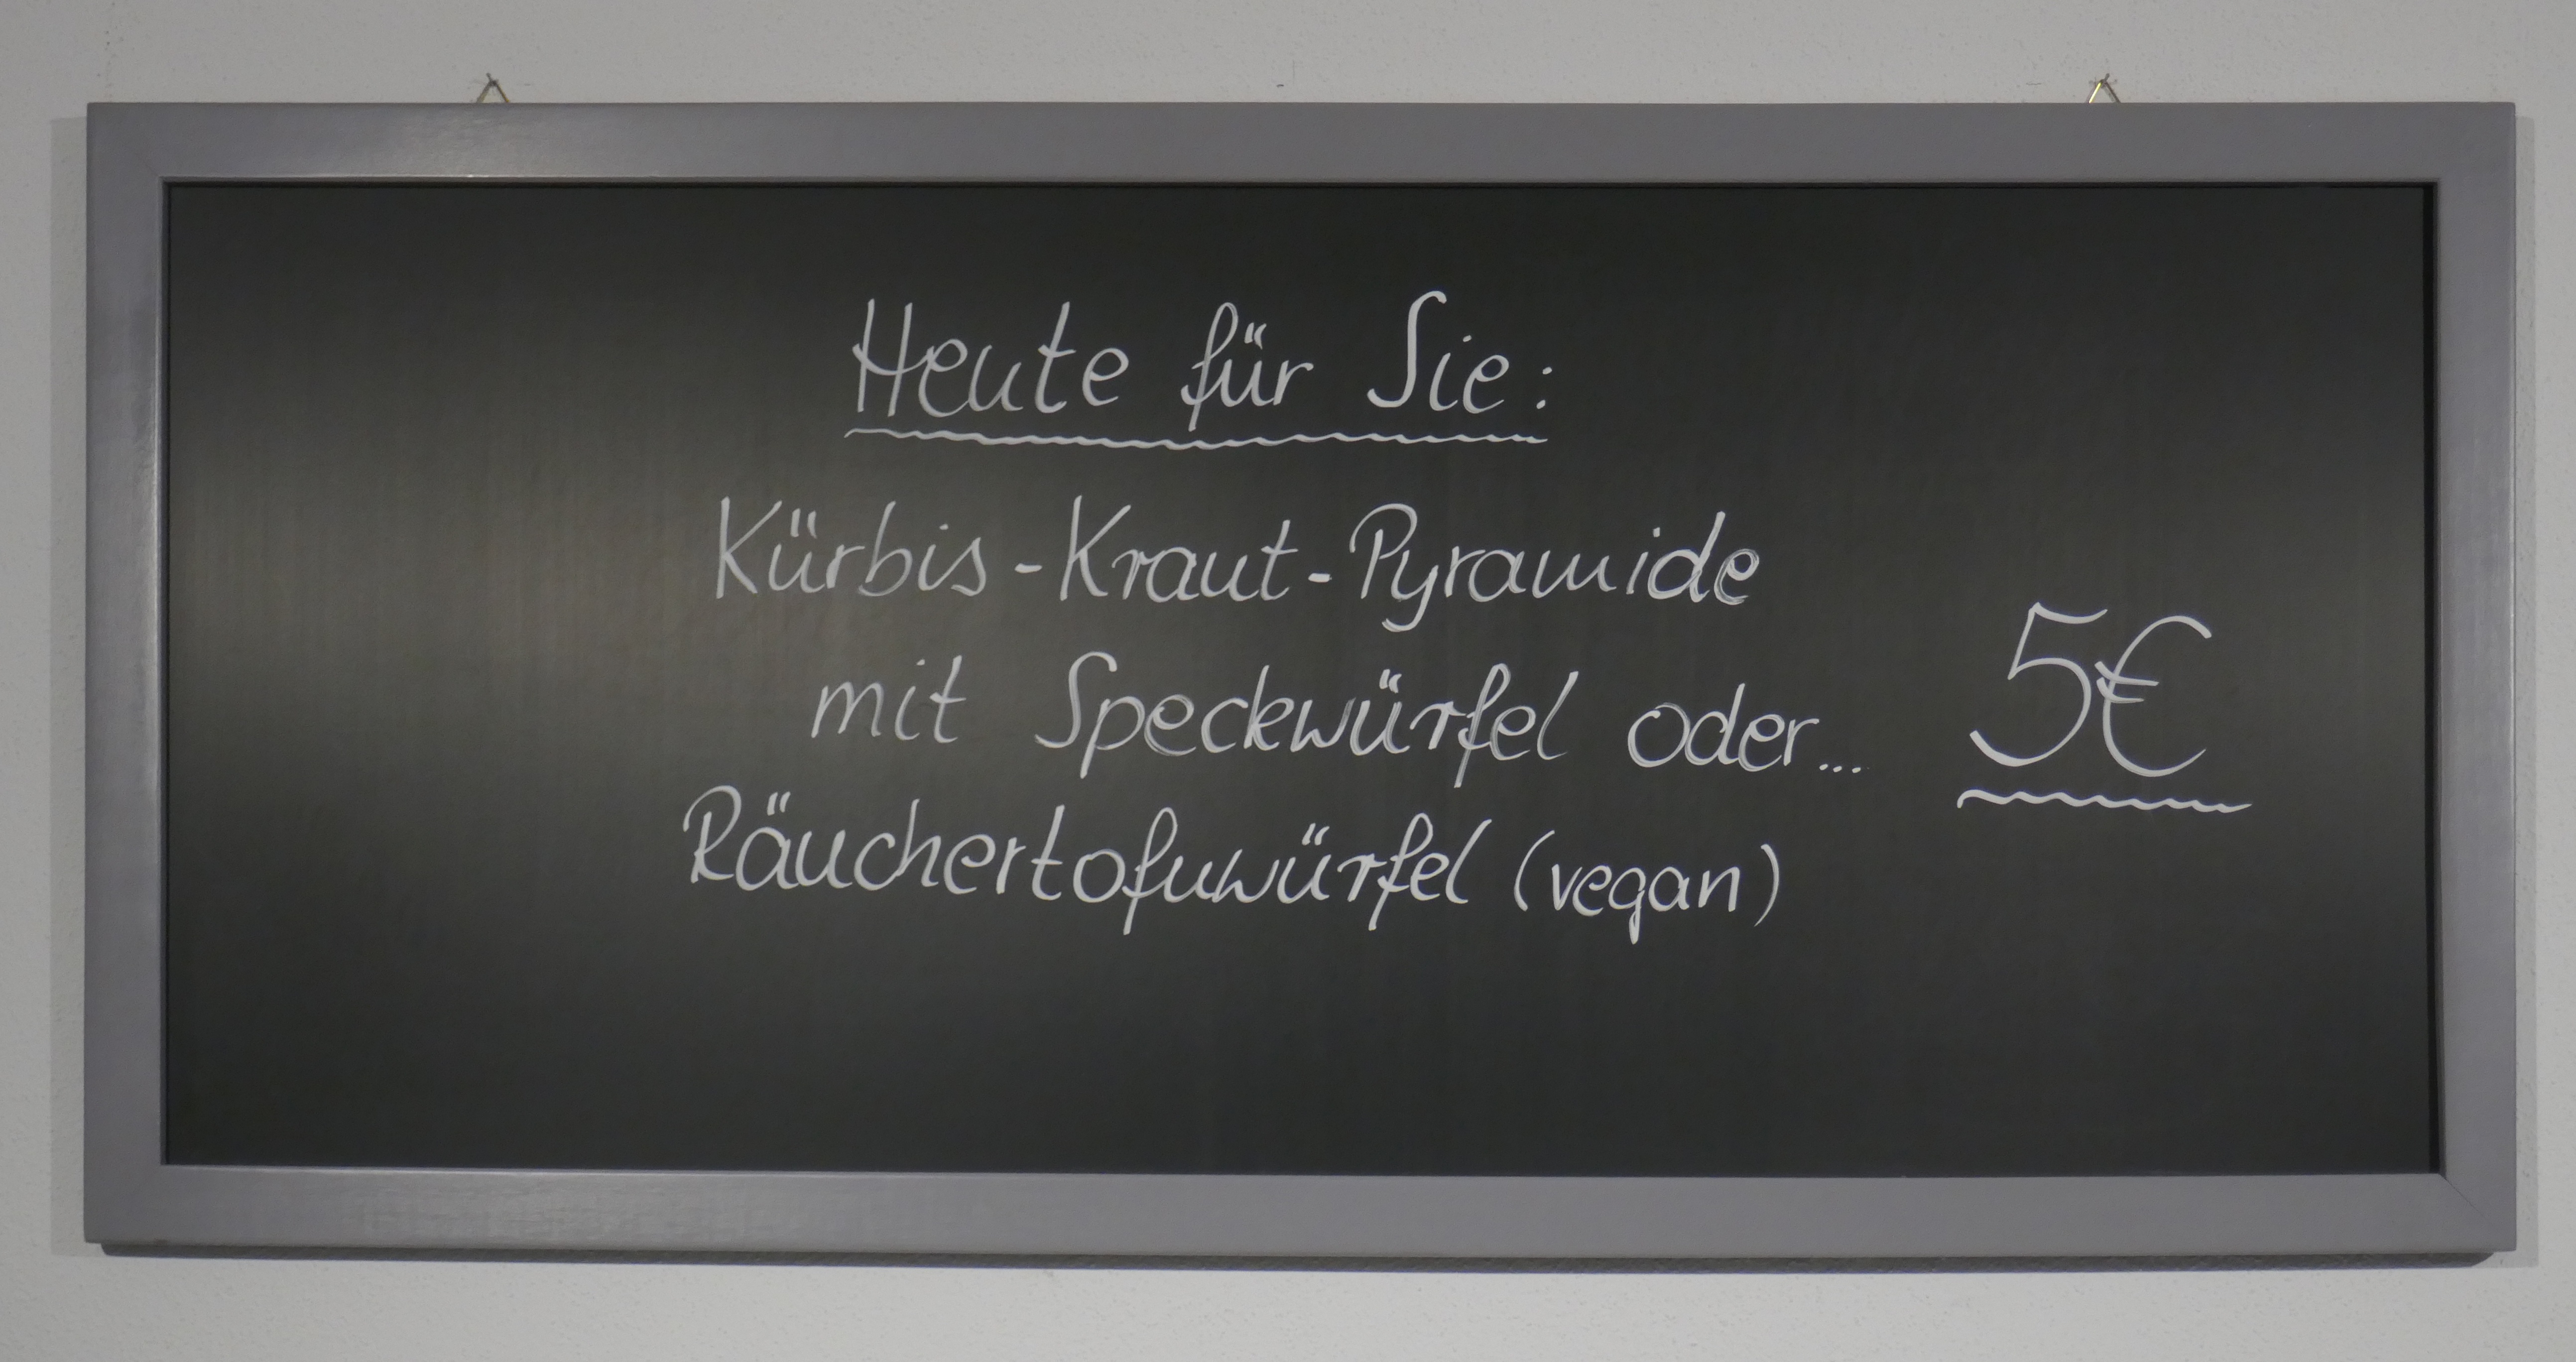 Heute für Sie:
Kürbis-Kraut-Pyramide
mit Speckwürfel oder...
Räuchertofuwürfel (vegan)
5€